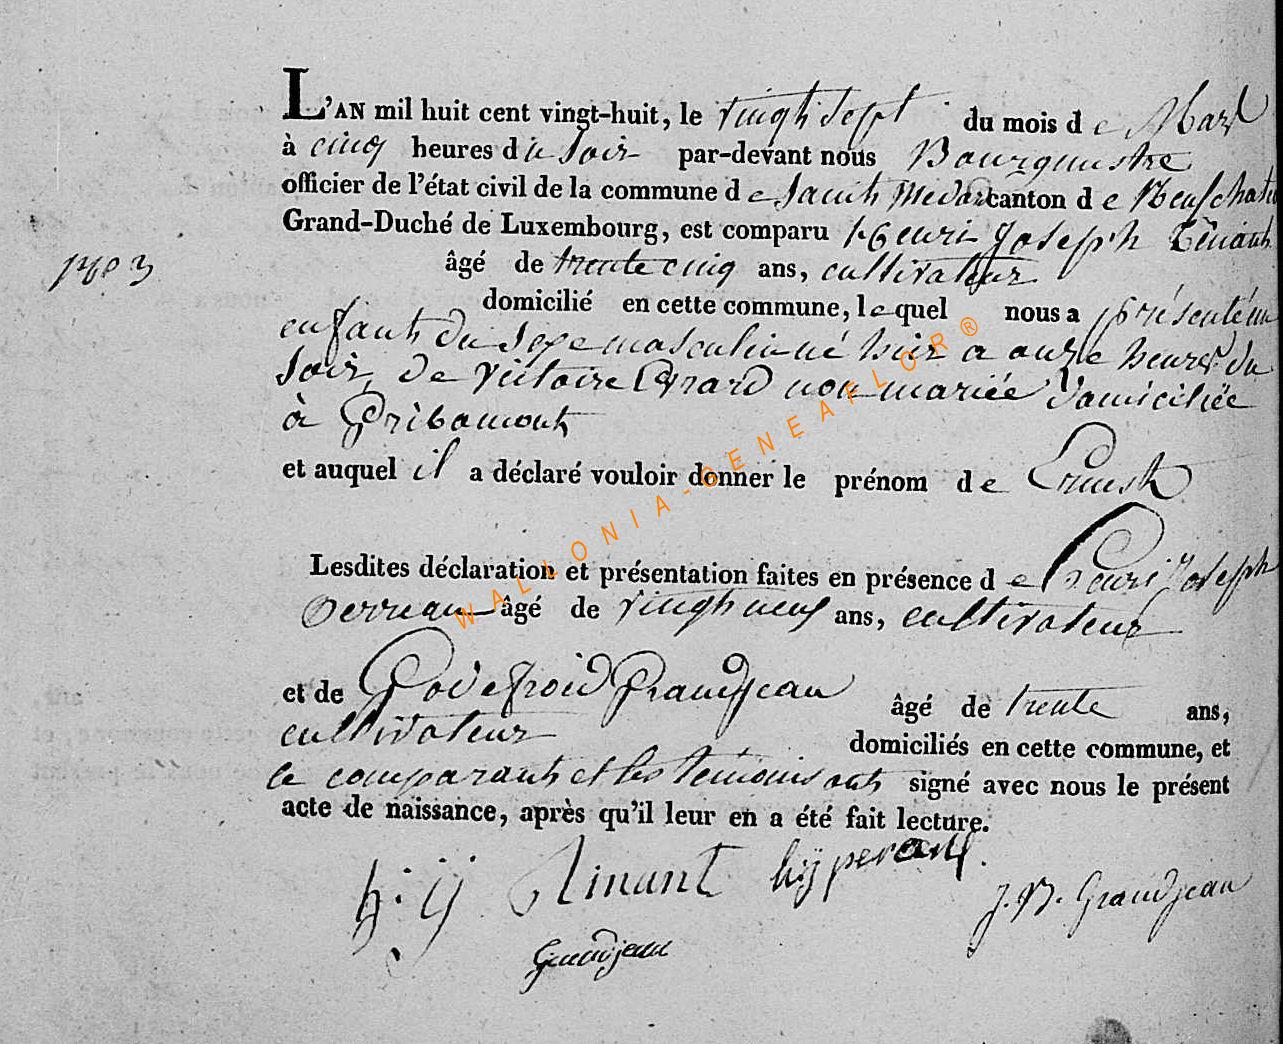 L'AN mil huit cent vingt-huit, le vingt sept du mois de Mars
à cinq heures du Soir par-devant nous Bourgmestre
officier de l'état civil de la commune de Saint Medard canton de Neufchateau
Grand-Duché de Luxembourg, est comparu Henri Joseph
âgé de trente cinq ans, cultivateur
domicilié en cette commune, lequel nous a présenté un
enfant du Sexe masculin né hier a onze heures du
Soir, de Victoire Evrard non mariée Domiciliée
à Gribomont
et auquel il a déclaré vouloir donner le prénom de Ernest
Lesdites déclaration et présentation faites en présence de Henri Joseph
âgé de vingt neuf ans, cultivateur
et de Godefroid Grandjean âgé de trente ans,
cultivateur domiciliés en cette commune, et
le comparant et les temoins ont signé avec nous le présent
acte de naissance, après qu'il leur en a été fait lecture.
J. B. Grandjean
Grandjean
WALLONIA-GENEAFLOR®